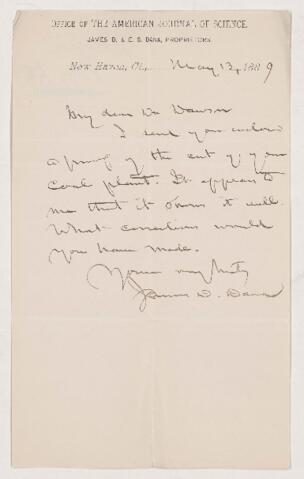 OFFICE OF THE AMERICAN JOURNAL OF SCIENCE.
JAMES D. & E. S. DANA, PROPRIETORS.
New Haven, Ct., May 13, 1889
My dear Dr Dawson
I send you enclosed
a proof of the cut of your
coal plant. It appears to
me that it shows it well.
What corrections would
you have made.
Yours very truly
James D. Dana